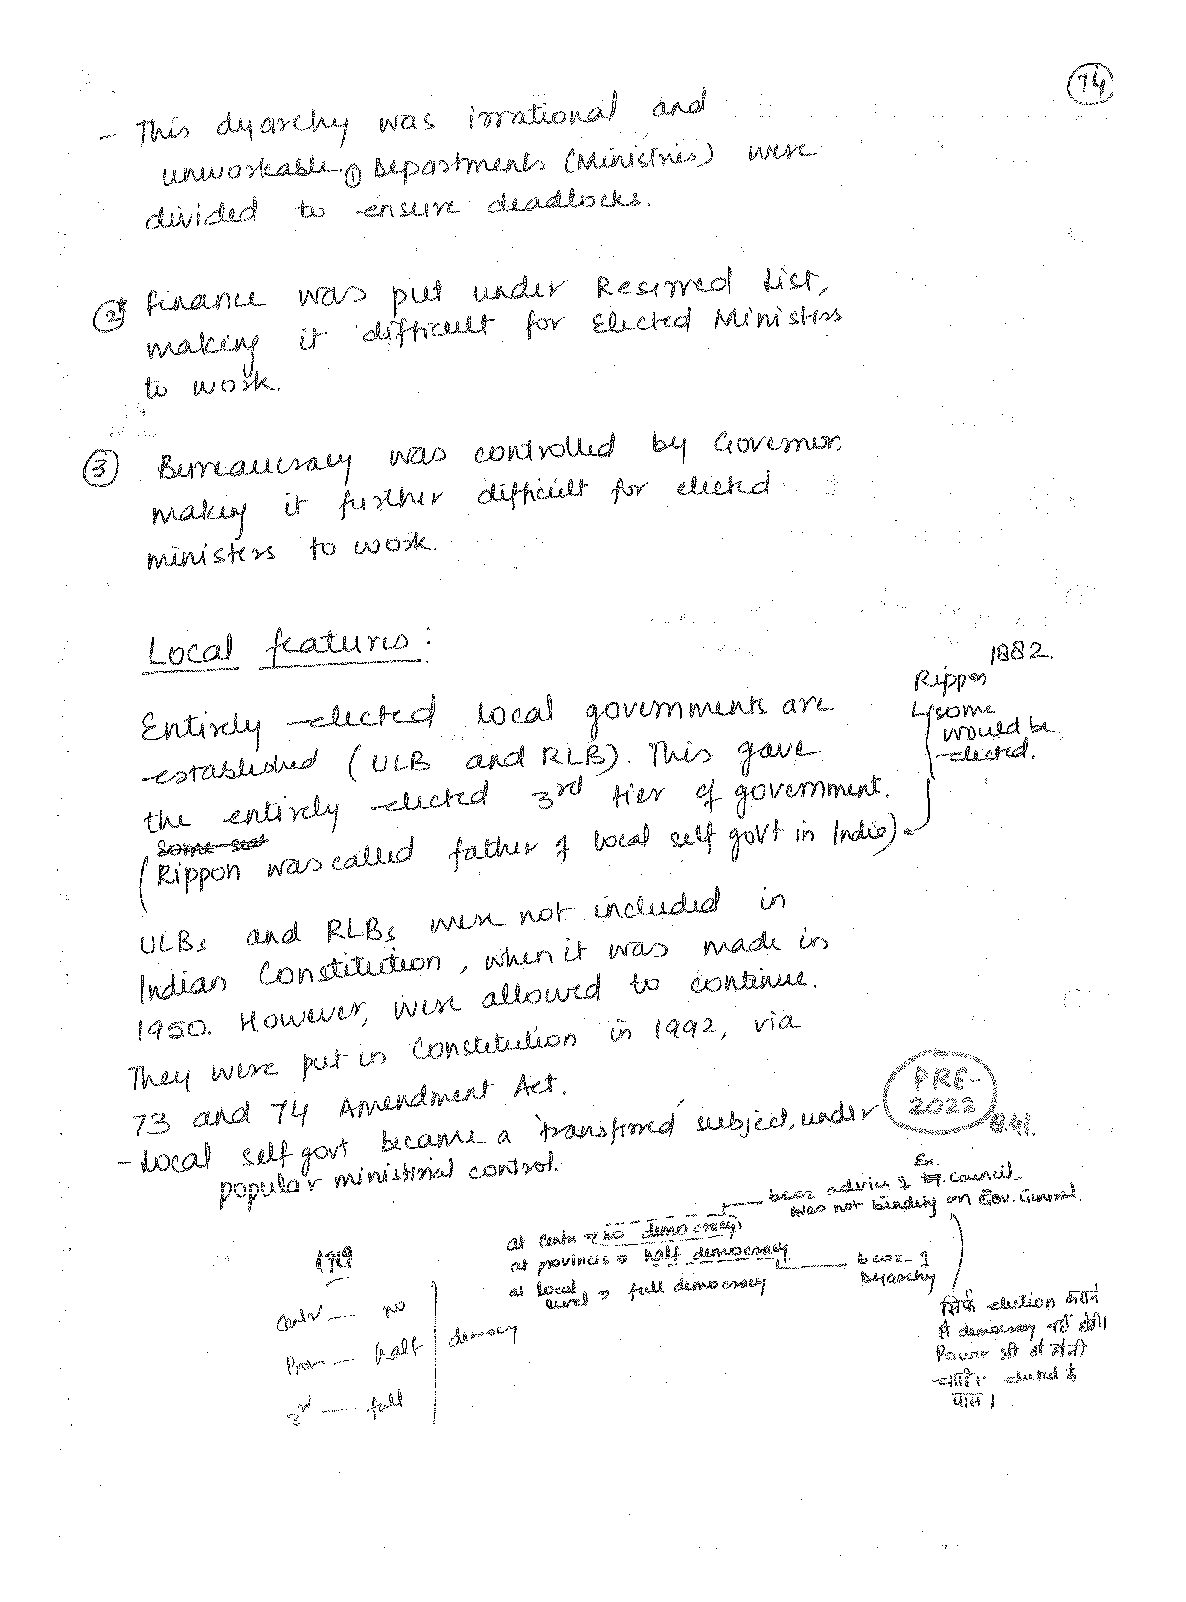 74
- This dyarchy was irrational and
unworkable. ① Departments (Ministries) were
divided to ensure deadlocks.
② Finance was put under Reserved List,
making it difficult for Elected Ministers
to work.
③ Bureaucracy was controlled by Governor.
making it further difficult for elected
ministers to work.
Local features:
1882.
Rippon
↳ some
would be
elected.
Entirely elected local governments are
established (ULB and RLB). This gave
the entirely elected 3rd tier of government.
(Rippon was called father of local self govt in India)
ULBs and RLBs were not included in
Indian Constitution, when it was made in
1950. However, were allowed to continue.
They were put in Constitution in 1992, via
73 and 74 Amendment Act.
PRE-
2022
- Local self govt became a 'transferred' subject, under
popular ministerial control.
becoz advice of Ex. council
was not binding on Gov. General.
at centre → no democracy
at provinces → half democracy
at local
level → full democracy
becoz of
Dyarchy
1919
Centr — no
Prov — half
3rd — full
democy
सिर्फ election कराने
से democracy नहीं होगी।
Power भी तो होनी
चाहिए elected के
पास।